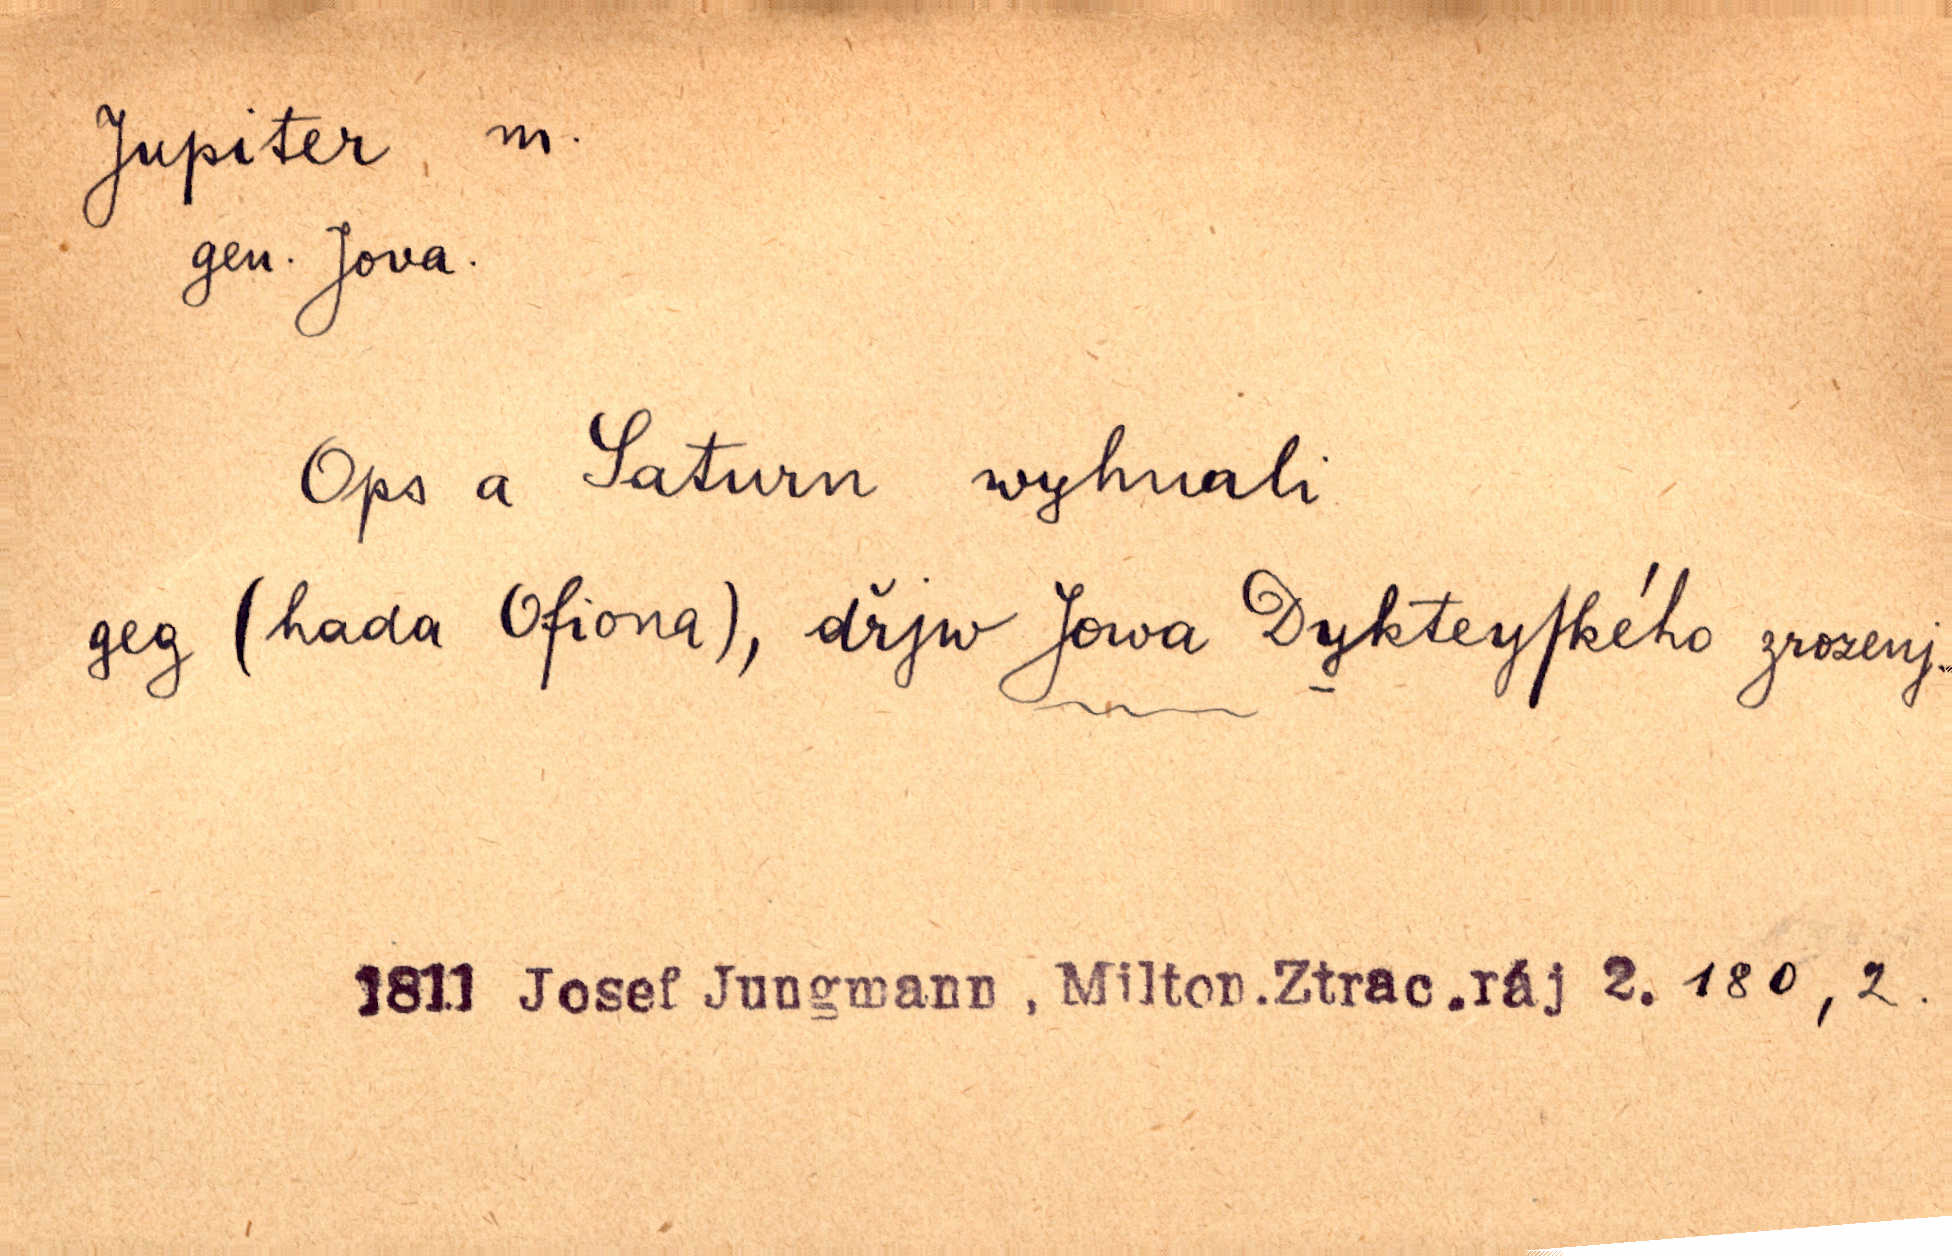 Jupiter m.
gen. Jova.
Ops a Saturn wyhnali
geg (hada Ofiona), dřjw Jowa Dykteyſkého zrozenj.
1811 Josef Jungmann, Milton.Ztrac.ráj 2. 180,2.